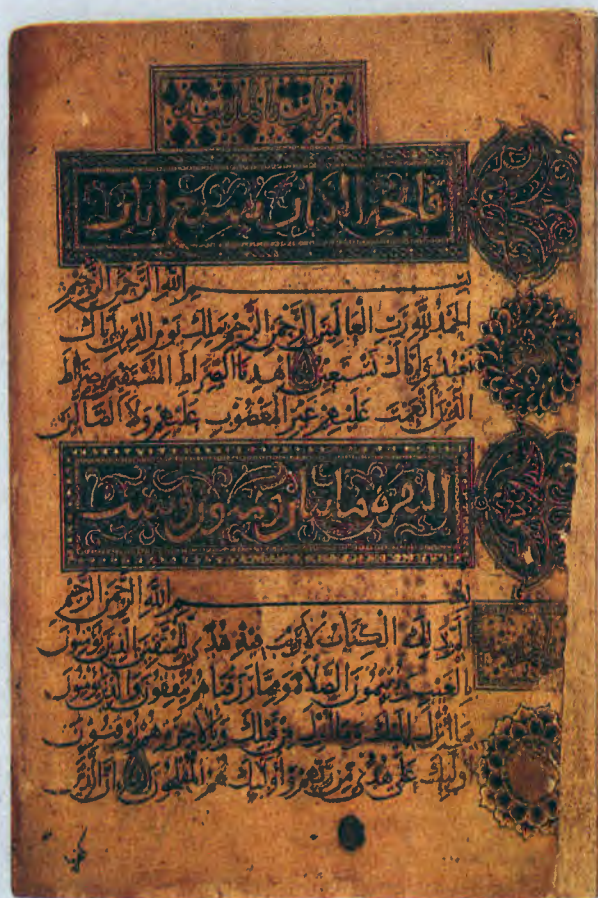 فاتحة الكتاب سبع ايات
بسم الله الرحمن الرحيم
الحمد لله رب العالمين الرحمن الرحيم ملك يوم الدين اياك
نعبد واياك نستعين اهدنا الصراط المستقيم صراط
الذين انعمت عليهم غير المغضوب عليهم ولا الضالين
البقرة مايتان وست
بسم الله الرحمن الرحيم
الم ذلك الكتاب لا ريب فيه هدى للمتقين الذين يؤمنون
بالغيب ويقيمون الصلاة ومما رزقناهم ينفقون والذين يؤمنون
بما انزل اليك وما انزل من قبلك وبالآخرة هم يوقنون
اوليك على هدى من ربهم واوليك هم المفلحون ان الذين